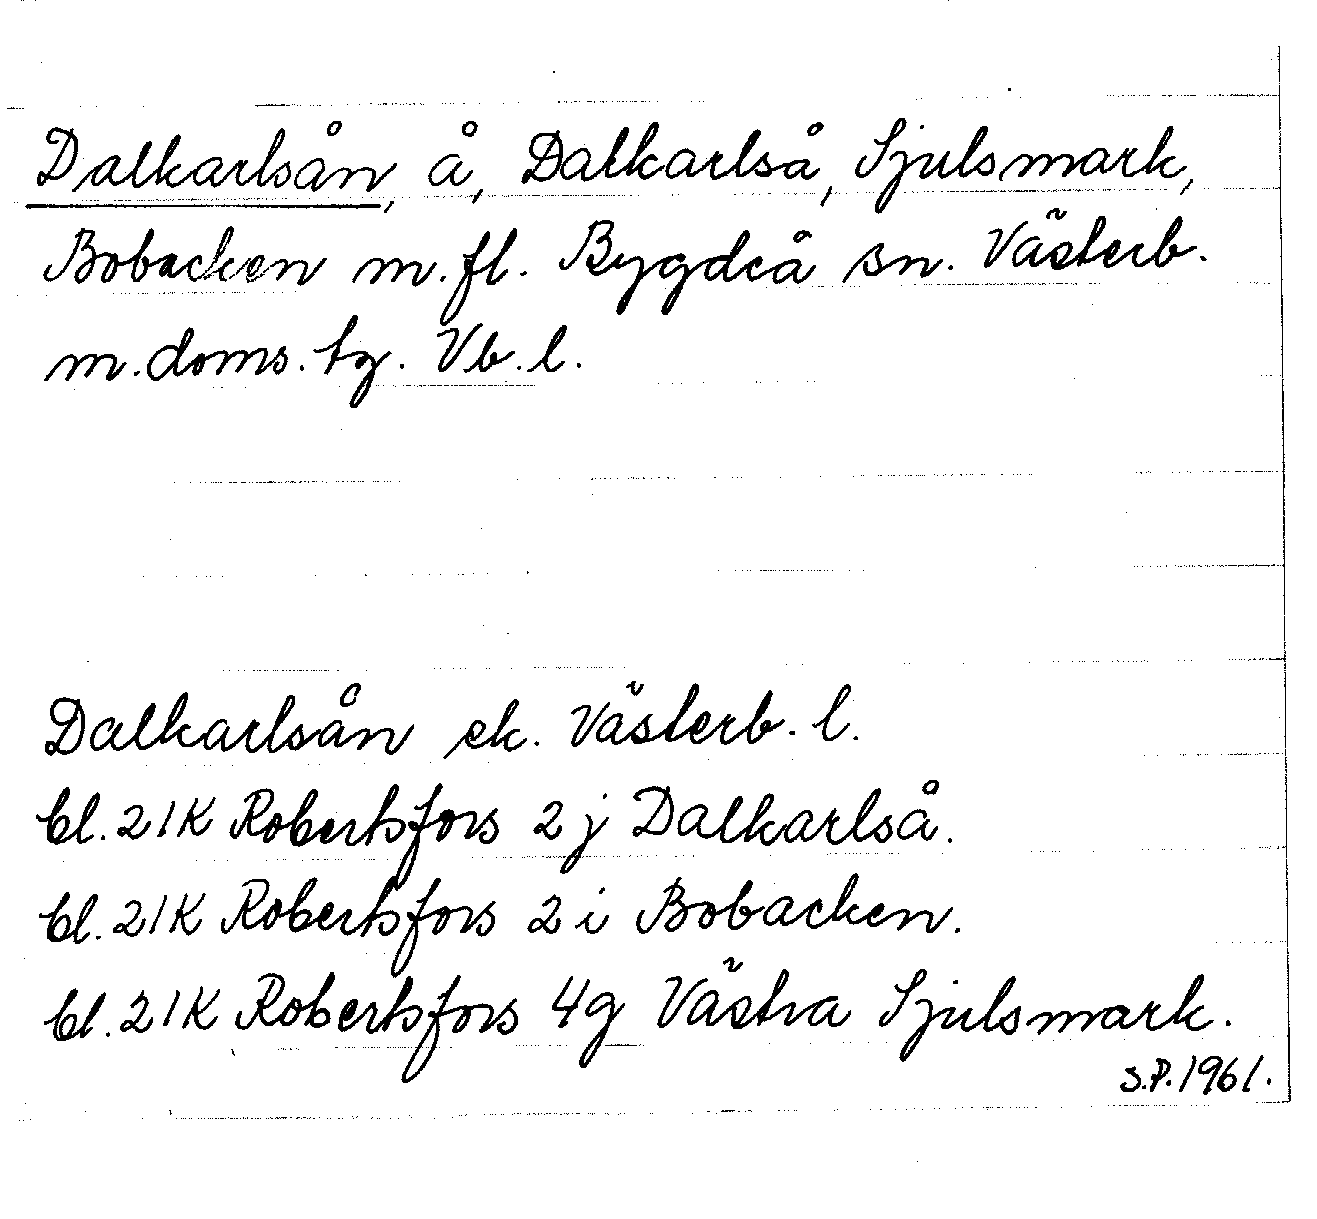 Dalkarlsån, å, Dalkarlså, Sjulsmark,
Bobacken m.fl. Bygdeå sn. Västerb.
m.doms.tg. Vb.l.
Dalkarlsån ek. Västerb. l.
bl.21K Robertsfors 2j Dalkarlså.
bl.21K Robertsfors 2i Bobacken.
bl.21K Robertsfors 4g Västra Sjulsmark.
S.P.1961.